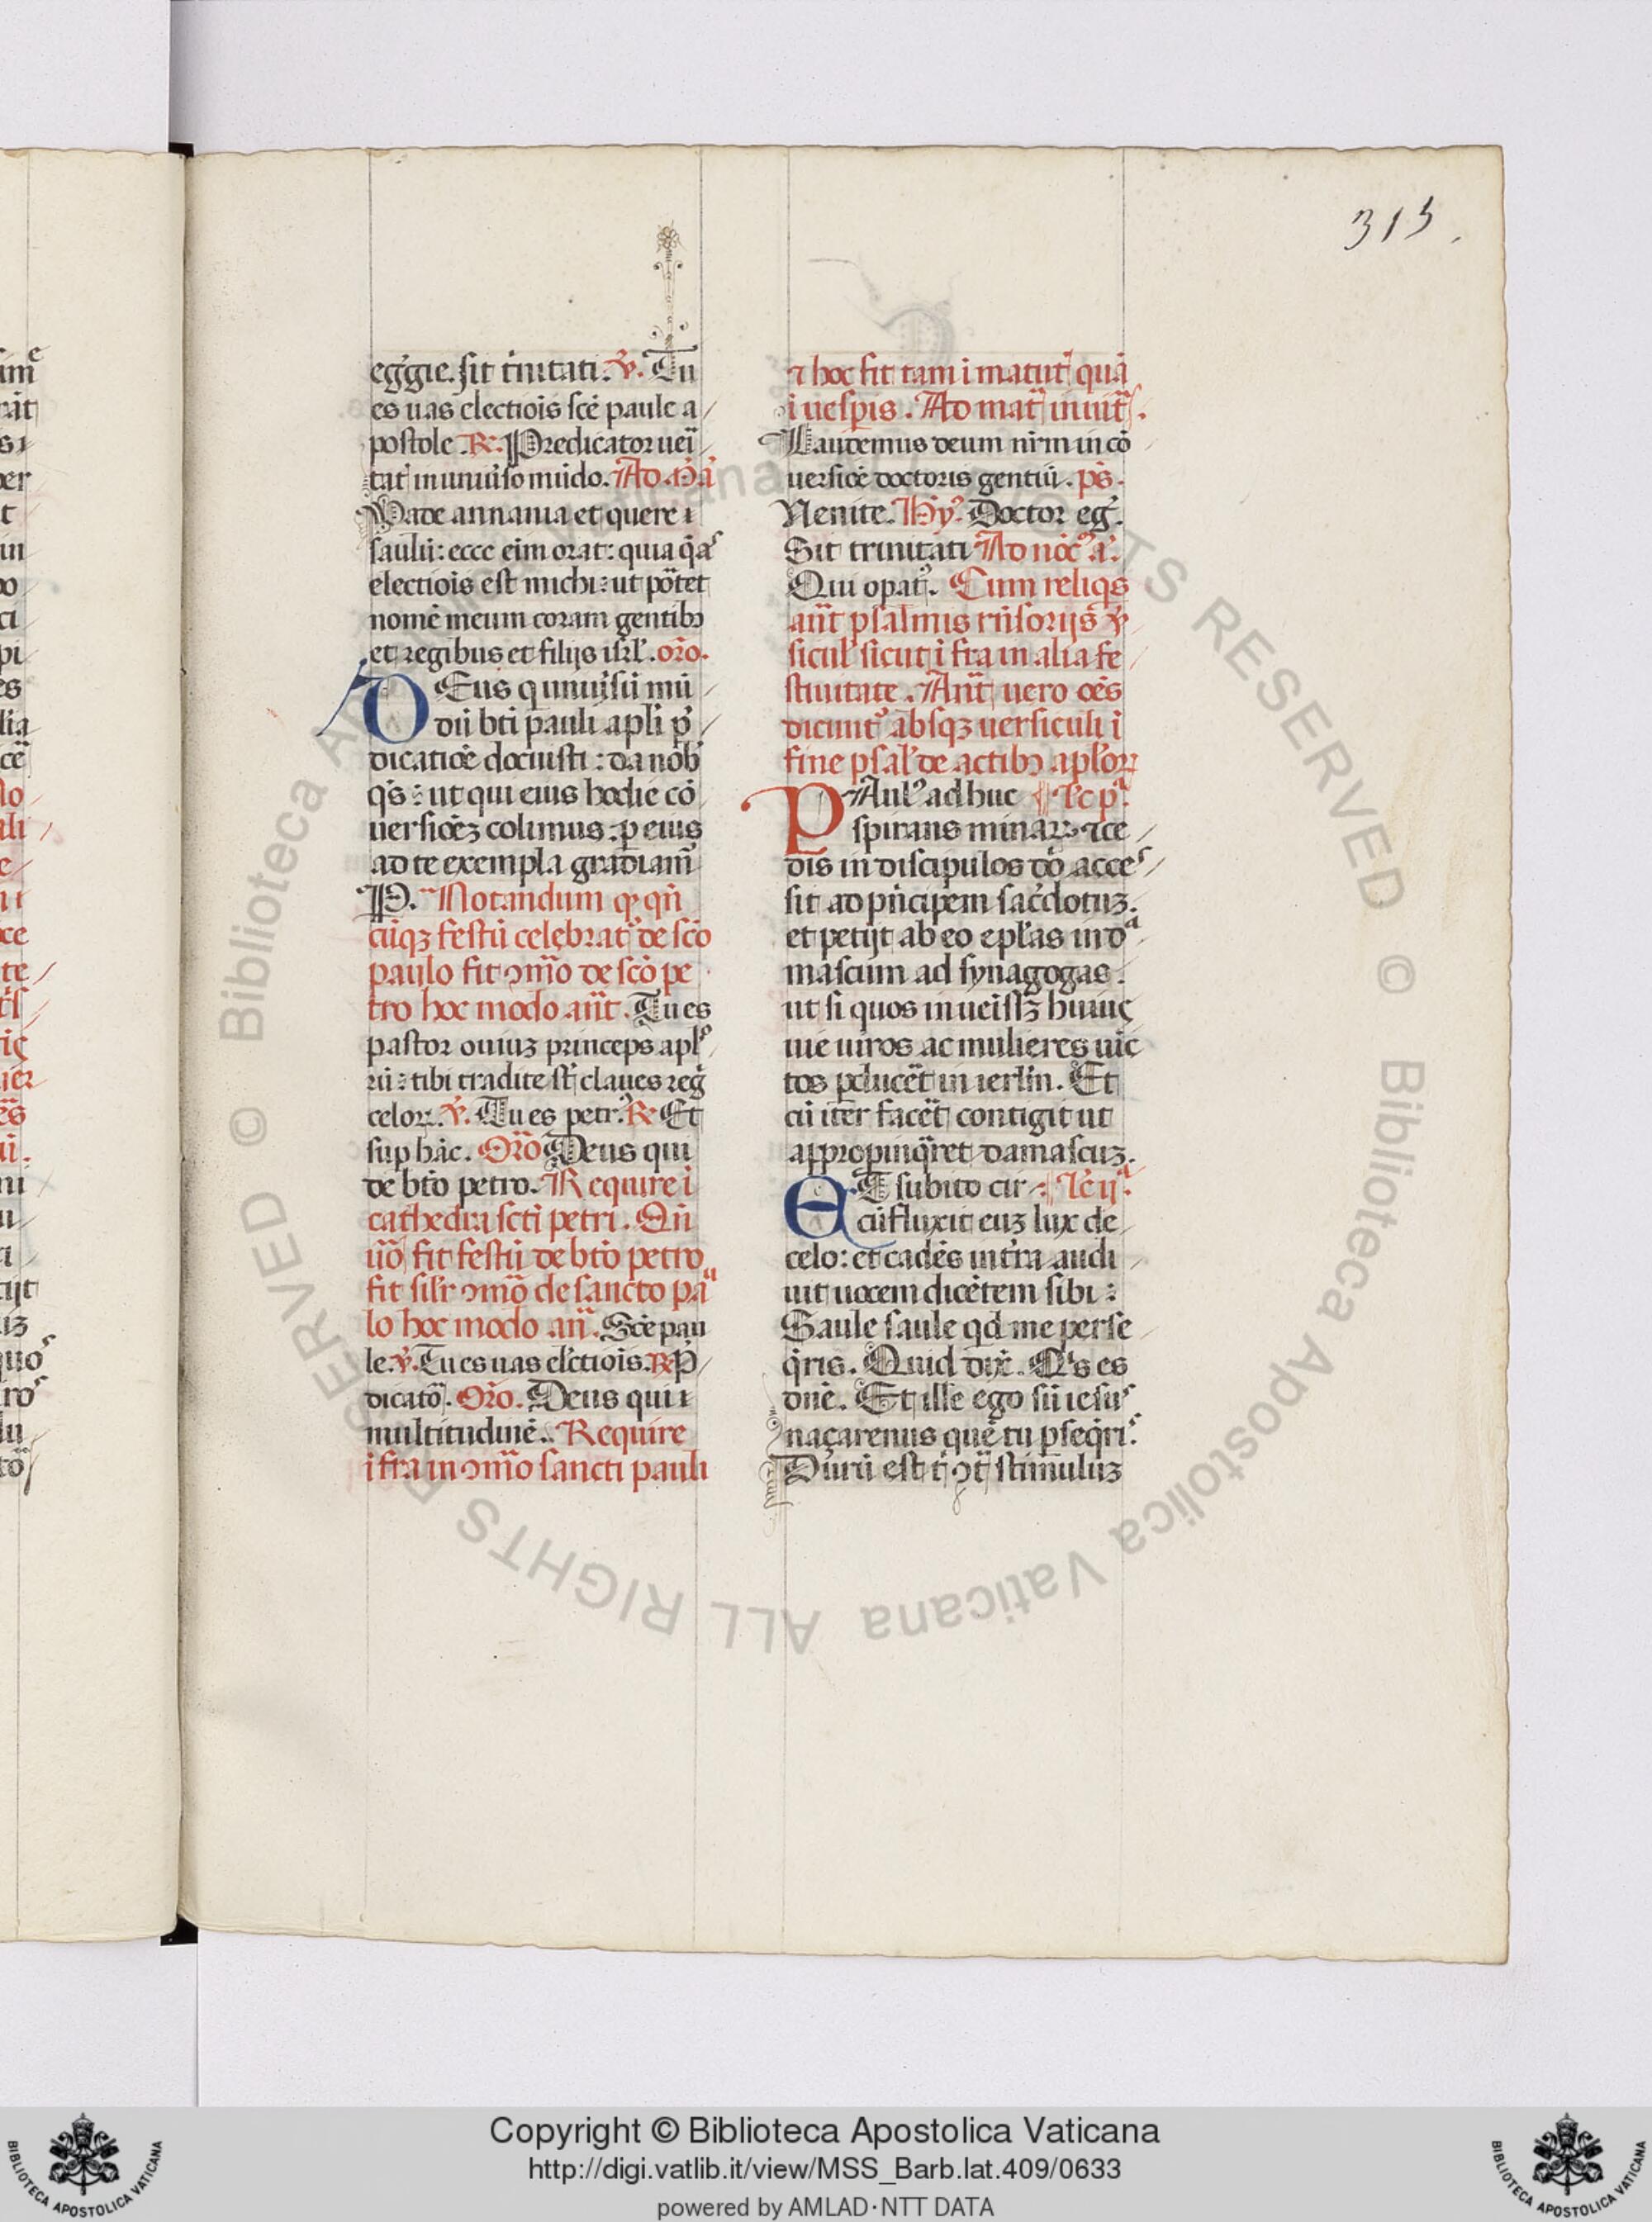 315.
eg̃gie. sit t'nitati. ℣. Tu
es uas electiõis scẽ paule a/
postole. ℞. Predicator uei/
tat' in unuiso mũdo. Ad M̃. a͂
Vade annania et quere i
saulũ: ecce eim orat: quia q̃as
electiõis est michi: ut põtet
nomẽ meum coram gentibꝫ
et regibus et filijs isrl'. oŕo.
DEus q unuisũ mũ/
dũ bt̃i pauli apl'i p̃/
dicatiõe docuisti: da nob'
q̃s: ut qui eius hodie cõ
uersiõeꝫ colimus: ꝑ eius
ad te exempla gradiam̃
P. Notandum ꝙ qñ
cũqꝫ festũ celebrat' de sc̃o
paulo fit ꝯm̃o de sc̃o pe
tro hoc modo añt. Tu es
pastor ouiuꝫ princeps apl'o/
rũ: tibi tradite st̃ claues reg̃
celoꝝ. ℣. Tu es petr'. ℞ Et
suꝑ hãc. Oŕo Deus qui
de bt̃o petro. Require i
cathedra sc̃ti petri. Qñ
uõ fit festũ de bt̃o petro
fit sil'r ꝯmõ de sancto pau
lo hoc modo añ. Sc̃e pau
le. ℣. Tu es uas el'ctiõis. ℞ P̃/
dicato͂. Oŕo. Deus qui i
multitudinẽ. Require
i fra in ꝯm̃o sancti pauli
⁊ hoc fit tam i matut̃ quã
i uesꝑis. Ad mat̃ inuit̃.
Laudemus deum nr̃m in cõ
uersiõe doctoris gentiũ. ps̃.
Uenite. Hy'. Doctor eg̃.
Sit trinitati Ad noc̃. a͂.
Qui opat'. Cum reliqs
añt psalmis rñsorijs ℣
sicul' sicut i fra in alia fe/
stiuitate. Añt uero oẽs
dicunt' absqꝫ uersiculi i
fine psal' de actibꝫ apl'oꝝ
PAul' adhuc ¶ Lc̃ pª.
spirans minaꝝ ⁊ ce/
dis in discipulos dõ acces/
sit ad pñcipem sac̃dotuꝫ.
et petijt ab eo epl'as in da
mascum ad synagogas.
ut si quos in ueissꝫ huiuç
uie uiros ac mulieres uic
tos ꝑducẽt in ierl'm. Et
cũ iter facẽt contigit ut
appropinq̃ret damascuꝫ.
ET subito cir ¶ Lc̃ ijª.
cũfluxit euꝫ lux de/
celo: et cadẽs in t'ra audi/
uit uocem dicẽtem sibi:
Saule saule qd me perse/
q̃ris. Quid dix̃. Q's es
dñe. Et ille ego sũ iesus
naçarenus quẽ tu ꝑseq̃ris.
Durũ est t' ꝯt̃ stimuluꝫ
© Biblioteca Apostolica Vaticana ALL RIGHTS RESERVED © Biblioteca Apostolica Vaticana ALL RIGHTS RESERVED
Copyright © Biblioteca Apostolica Vaticana
http://digi.vatlib.it/view/MSS_Barb.lat.409/0633
powered by AMLAD·NTT DATA
BIBLIOTECA APOSTOLICA VATICANA
BIBLIOTECA APOSTOLICA VATICANA